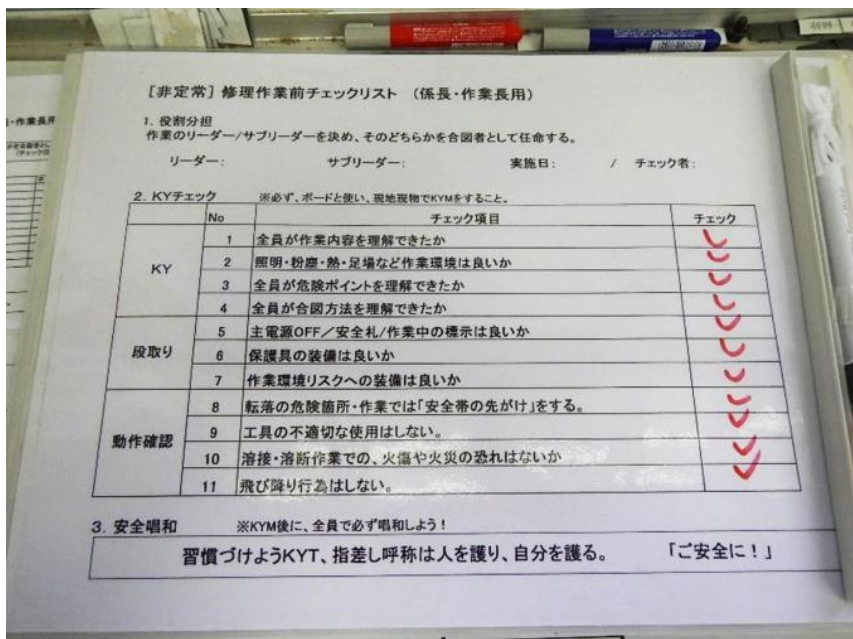 [非定常] 修理作業前チェックリスト (係長・作業長用)
1. 役割分担
作業のリーダー/サブリーダーを決め、そのどちらかを合図者として任命する。
リーダー: サブリーダー: 実施日: / チェック者:
2. KYチェック ※必ず、ボードと使い、現地現物でKYMをすること。
No チェック項目 チェック
KY
1 全員が作業内容を理解できたか
2 照明・粉塵・熱・足場など作業環境は良いか
3 全員が危険ポイントを理解できたか
4 全員が合図方法を理解できたか
段取り
5 主電源OFF/安全札/作業中の標示は良いか
6 保護具の装備は良いか
7 作業環境リスクへの装備は良いか
動作確認
8 転落の危険箇所・作業では「安全帯の先がけ」をする。
9 工具の不適切な使用はしない。
10 溶接・溶断作業での、火傷や火災の恐れはないか
11 飛び降り行為はしない。
3. 安全唱和 ※KYM後に、全員で必ず唱和しよう!
習慣づけようKYT、指差し呼称は人を護り、自分を護る。 「ご安全に!」